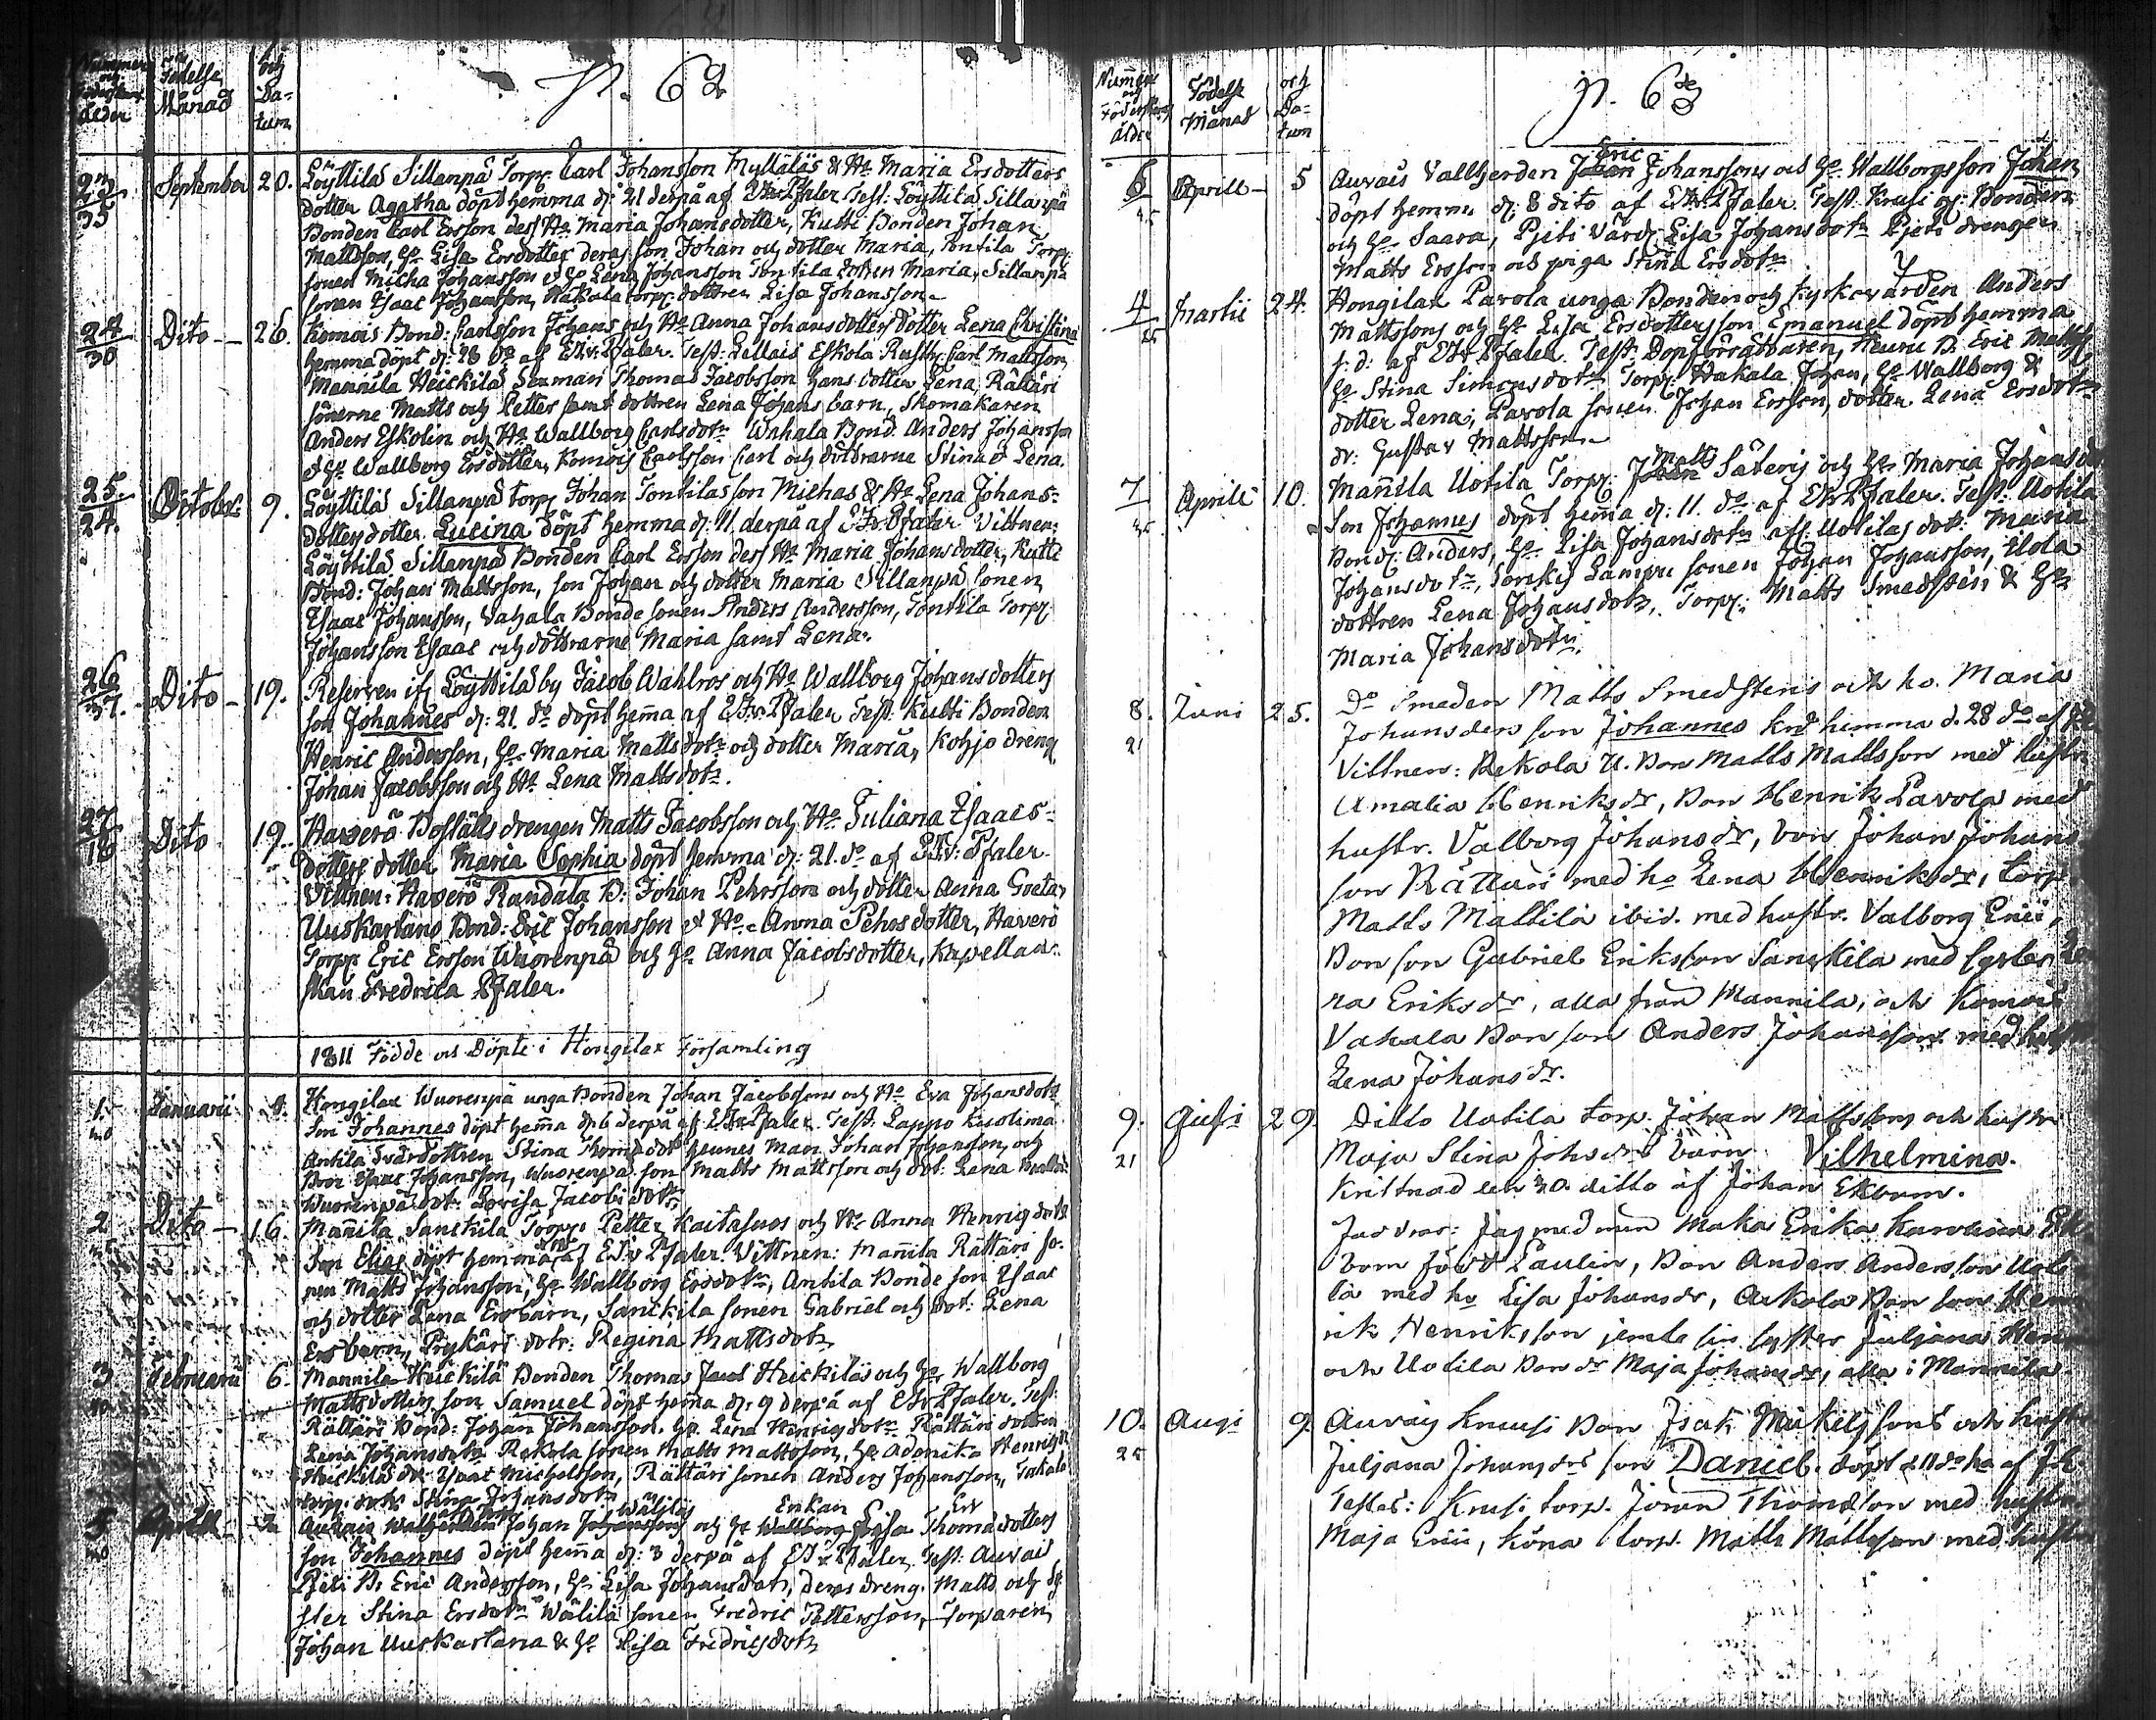 Nummer och Föderskans ålder
Födelse Månad
och Datum
p. 62
23/35 September 20. Löyttilä Sillanpä Torp: Carl Johansson Mylläläs & Ho Maria Ersdotters
dotter Agatha döpt hemma d: 21 derpå af E Fr Pfaler Test: Löyttilä Sillanpä
Bonden Carl Ersson dess Ho Maria Johansdotter, Kutti Bonden Johan
Mattsson, Ho Lisa Ersdotter deras son Johan och dotter Maria, Tontila Torp:
sonen Micha Johansson & Ho Lena Johansson Tontila dottren Maria, Sillanpä
sonen Isaac Johansson, Hakala torp: dottren Lisa Johansson
24/30 Dito 26. Komois Bond: Carlsson Johans och Ho Anna Johansdotters dotter Lena Christina
hemma döpt d: 28 do af E Fr Pfaler. Test: Lellais Eskola Rusth: Carl Mattsson
Mannila Heickilä Sexman Thomas Jacobsson hans dotter Lena, Rättäri
sönerne Matts och Petter samt dottren Lena Johans barn, Skomakaren
Anders Eskolin och Ho Wallborg Carlsdotr Wahala Bond. Anders Johansson
& Ho Wallborg Ersdotter, Komois Carlsson Carl och döttrarne Stina & Lena.
25/24. October 9. Löyttilä Sillanpä torp: Johan Tontilas son Michas & Ho Lena Johans-
dotters dotter Lucina döpt hemma d: 11 derpå af E Fr Pfaler Vittnen:
Löyttilä Sillanpä Bonden Carl Ersson dess Ho Maria Johansdotter, Kutti
Bond: Johan Mattsson, son Johan och dotter Maria Sillanpä sonen
Isaac Johansson, Vahala Bonde sonen Anders Andersson, Tontila Torp:
Johansson Isaac och döttrarne Maria samt Lena.
26/37. Dito 19. Reserven ifr Löyttilä by Jacob Wahlros och Ho Wallborg Johansdotters
son Johannes d: 21. do döpt hema af E Fr Pfaler Test: Kutti Bonden
Henric Andersson, Ho Maria Mattsdotr och dotter Maria, Kohjo dreng
Johan Jacobsson och Ho Lena Mattsdotr.
27/18 Dito 19. Haverö Boställs drengen Matts Jacobsson och Ho Juliana Isaacs-
dotters dotter Maria Sophia döpt hemma d: 21. do af E Fr: Pfaler
Vittnen: Haverö Randala B: Johan Pehrsson och dotter Anna Greta,
Uuskartano Bond: Eric Johansson & Ho Anna Pehrsdotter, Haverö
Torp: Eric Ersson Wuorenpä och Ho Anna Jacobsdotter, Kapellans-
skan Fredrica Pfaler.
1811 Födde och Döpte i Hongilax Församling
1. Januarii Hongilax Wuorenpä unga Bonden Johan Jacobssons och Ho Eva Johansdotr
son Johannes döpt hema d: 6 derpå af E Fr Pfaler. Test: Lappo Kuolima
Antila Svärdottren Stina Thomædotr hennes Man Johan Johansson, och
Bror Isaac Johansson, Wuorenpä son Matts Mattsson och dot: Lena Mattsd
Wuorenpä dotr: Lovisa Jacobsdotr
2 Dito 16. Mañila Sanckila Torp: Petter Kaitasuos och Ho Anna Henrigsdotr
Son Elias döpt hemma af E Fr Pfaler. Vittnen: Mañila Rättäri so-
nen Matts Johansson, Ho Wallborg Ersdotr, Antila Bonde son Isaac
och dotter Lena Ers barn, Sanckila sonen Gabriel och dot: Lena
Ers barn, Prykäri dotr: Regina Mattsdotr
3 Februarii 6. Mannila Heickilä Bonden Thomas Jacob Heickiläs och Ho Wallborg
Mattsdotters son Samuel döpt hema d: 9 derpå af E Fr Pfaler. Test:
Rättäri Bond: Johan Johansson, Ho Lena Henrigsdotr Rättäri dottren
Lena Johansdotr Rekola sonen Matts Mattsson, Ho Adonika Henrigsd
Heickilä dr. Isaac Michelsson, Rättäri sonen Anders Johansson,
torp: dotr Stina Johansdotr
5 Aprill Auvais Johan Johansson Wälilas och Ho Wallborg Enkan Lisa Thomædotters
son Johannes döpt hema d: 3 derpå af E Fr Pfaler. Test: Auvais
Pjeti B. Eric Andersson, Ho Lisa Johansdotr, deras dreng. Matts och sy-
ster Stina Ersdotr Wälilä sonen Fredric Pettersson, Torparen
Johan Uuskartana & Ho Lisa Fredricsdotr
Nummer och Föderskans ålder
Födelse Månad
och Datum
p. 63
6/45 Aprill 5 Auvais Vallherden Johan Eric Johanssons och Ho Wallborgs son Johan
döpt hemma d: 8 dito af E Fr Pfaler. Test. Knusi B: Bonden
och Ho Saara, Pjeti Värd: Lisa Johansdotr Pjeti drengen
Matts Ersson och piga Stina Ersdotr
4/25 Martii 24. Hongilax Pavola unga Bonden och Kyrkovärden Anders
Mattssons och Ho Lisa Ersdotters son Emanuel döpt hemma
s: d: af E Fr Pfaler Test. Dopförrättaren, Heuru B. Eric Mattss
Ho Stina Simonsdotr Torp: Hakala Johan, Ho Wallborg &
dotter Lena, Pavola sonen Johan Ersson, dotter Lena Ersdotr
dr: Gustav Mattsson
7/45 Aprill 10. Mañila Uotila Torp: Johan Matts Säteris och Ho Maria Johansdr
Son Johannes döpt hema d: 11. do af E Fr Pfaler. Test: Uotila
Bond: Anders, Ho Lisa Johansdotr aff: Uotilas dot: Maria
Johansdotr, Sonkis Lampu sonen Johan Johansson, Elola
dottren Lena Johansdotr, Torp: Matts Smedsten & Ho
Maria Johansdotr.
8. 21 Juni 25. Do Smeden Matts Smedstens och ho. Maria
Johansders son Johannes krd hemma d. 28 do af
Vittnen: Rekola U. Bon Matts Mattsson med hustr
Amalia Henriksdr, Bon Henrik Pavola med
hustr. Valborg Johansdr, Bon Johan Johans
son Rättäri med ho Lena Henriksdr, torp.
Matts Mattila ibid. med hustr. Valborg Erici,
Bon son Gabriel Eriksson Sanckila med syster Le
na Eriksdr, alla från Mannila, och Komois
Vahala Bon son Anders Johansson med hustr
Lena Johansdr.
9. 21 29 Ditto Uotila torp. Johan Mattssons och hustr
Maja Stina Johsdrs barn Vilhelmina.
Kristnad den 30. ditto af Johan Ekbom.
Faddrar: Jag med min Maka Erika Karolina Ek
bom född Paulin, Bon Anders Andersson Uoti
la med ho Lisa Johansdr, Arkola Bon son Hen
rik Henriksson jemte sin syster Juljana Hen
och Uotila Bon dr Maja Johansdr, alla i Mannila.
10. 25 Augi 9. Auvais Knusi Bon Isak Mickelssons och hustr
Juljana Johansdrs son Daniel. döpt d 11 do ha af Joh
Testes: Knusi torp. Johan Thomasson med hustr
Maja Erici, Köna torp. Matts Mattsson med hustr